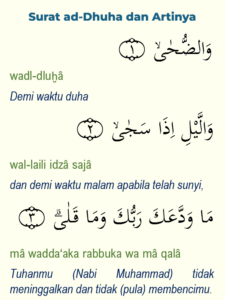 Surat ad-Dhuha dan Artinya
وَالضُّحٰىۙ ۝١
wadl-dluḫâ
Demi waktu duha
وَالَّيْلِ اِذَا سَجٰىۙ ۝٢
wal-laili idzâ sajâ
dan demi waktu malam apabila telah sunyi,
مَا وَدَّعَكَ رَبُّكَ وَمَا قَلٰىۗ ۝٣
mâ wadda‘aka rabbuka wa mâ qalâ
Tuhanmu (Nabi Muhammad) tidak
meninggalkan dan tidak (pula) membencimu.